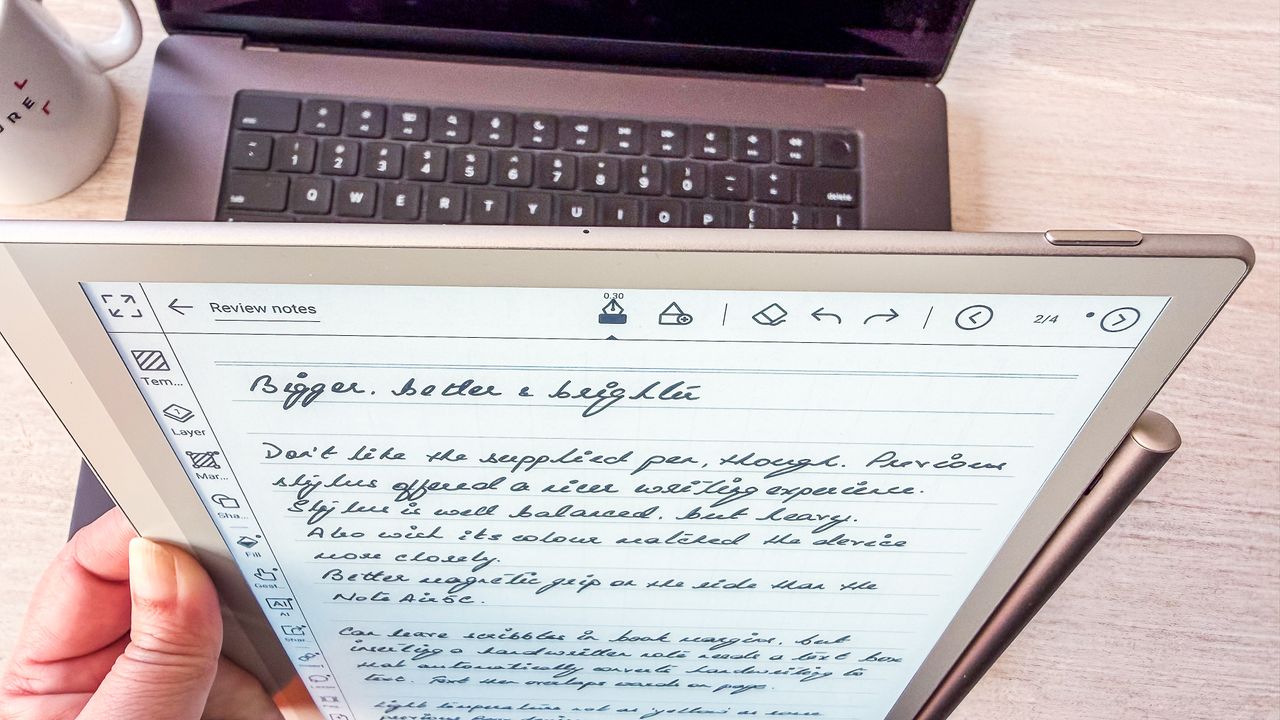 URE
esc
1 2 3 4 5 6 7 8 9 0
delete
Q W E R T Y U I O P
Review notes
0.30
2/4
Tem...
Layer
Mar...
Sha...
Fill
Gest...
AI
AI
Shar...
Bigger, better & brighter
Don't like the supplied pen, though. Previous
stylus offered a nicer writing experience.
Stylus is well balanced, but heavy.
Also wish its colour matched the device
more closely.
Better magnetic grip on the side than the
Note Air5C.
Can leave scribbles in book margins, but
inserting a handwritten note needs a text box
that automatically converts handwriting to
text. Text then overlaps words on page.
Light temperature not as yellow as some
previous Boox devices